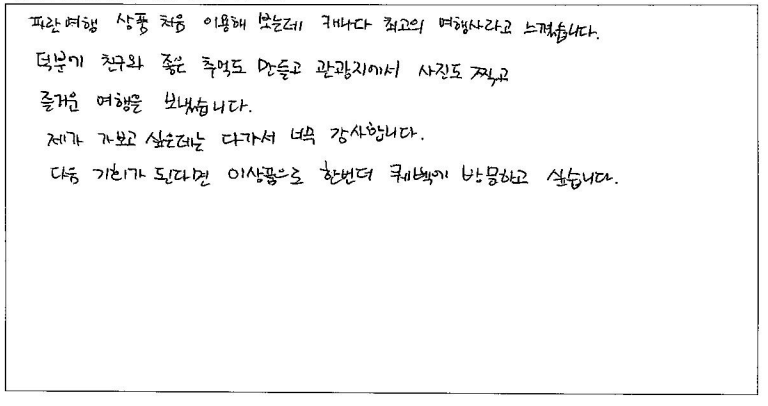 파란여행 상품 처음 이용해 보는데 캐나다 최고의 여행사라고 느꼈습니다.
덕분에 친구와 좋은 추억도 만들고 관광지에서 사진도 찍고
즐거운 여행을 보냈습니다.
제가 가보고 싶은데는 다가서 너무 감사합니다.
다음 기회가 된다면 이상품으로 한번더 퀘백에 방문하고 싶습니다.